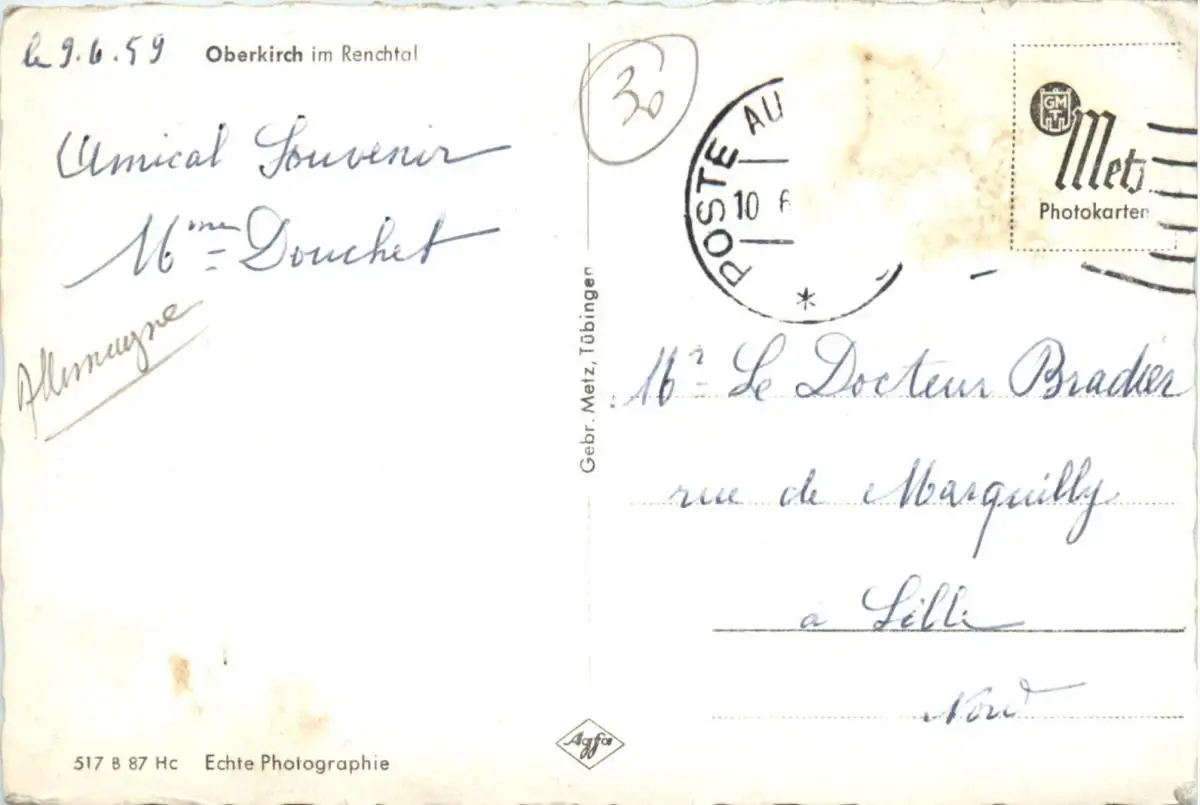 le 9.6.59
Oberkirch im Renchtal
Amical Souvenir
Mme Douchet
Allemagne
517 B 87 Hc Echte Photographie
Gebr. Metz, Tübingen
Agfa
30
POSTE AU
10 6
*
GMT
Metz
Photokarten
Mr Le Docteur Bradier
rue de Marquilly
a Lille
Nord